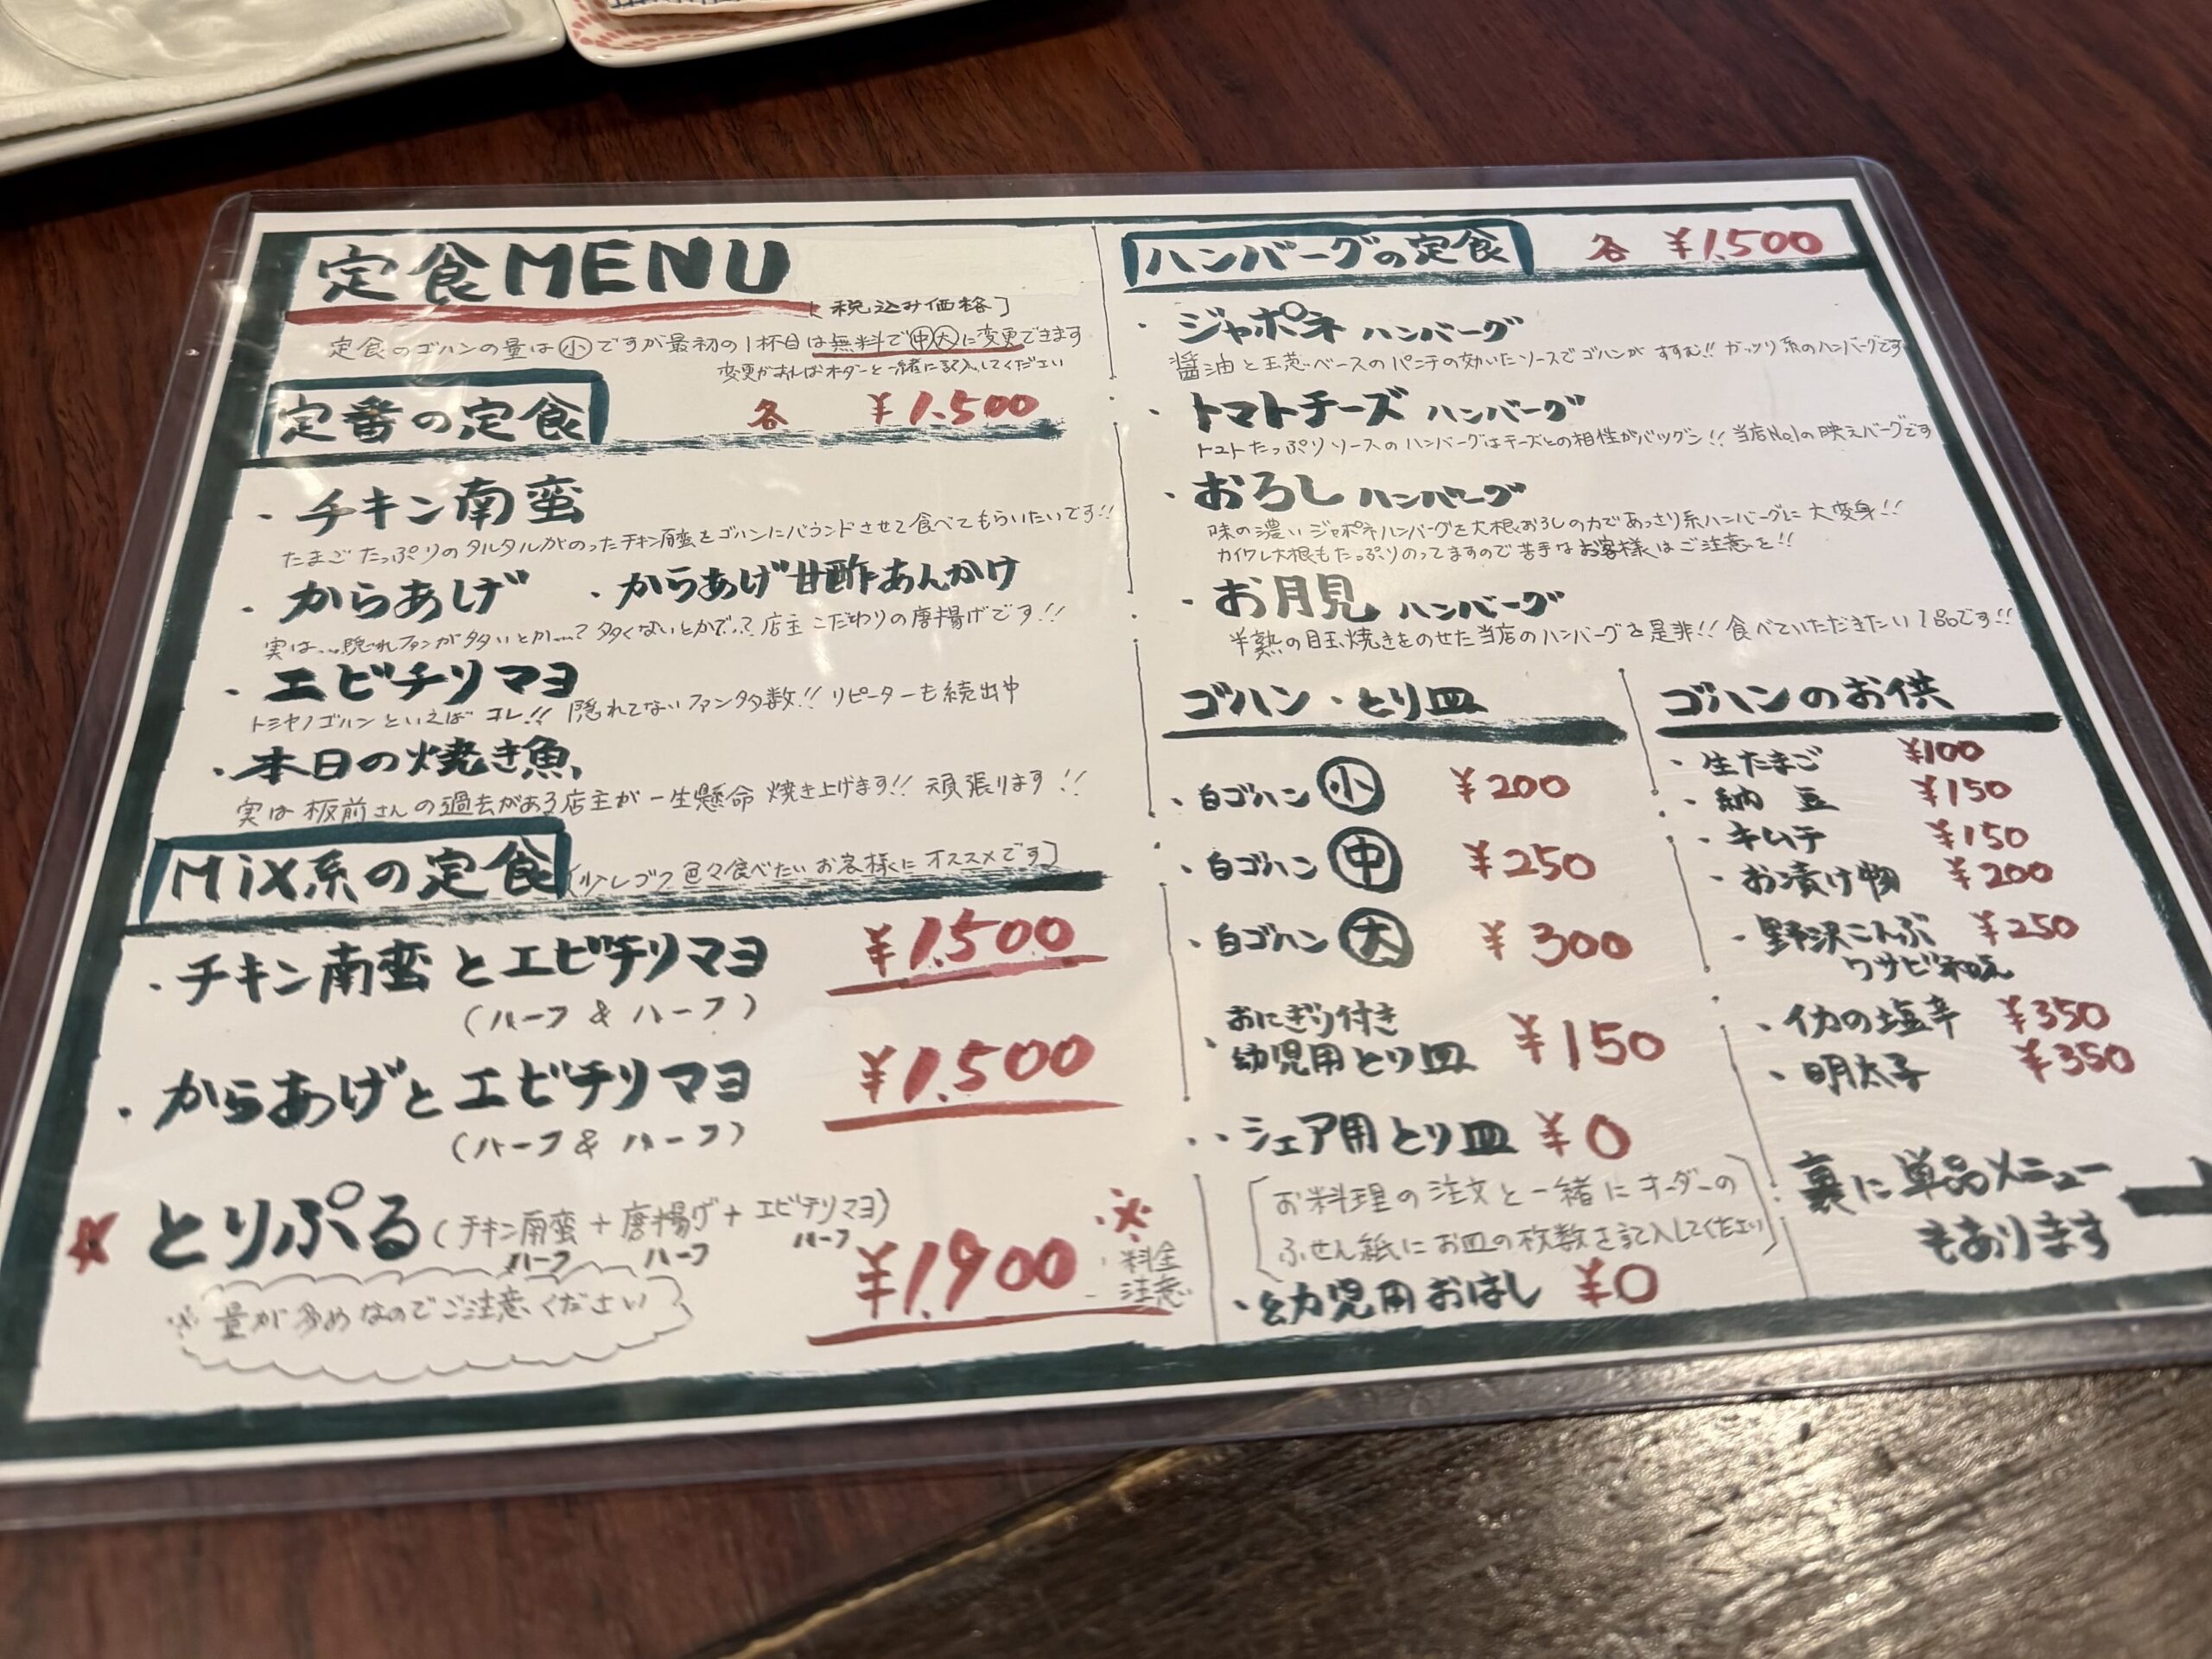 定食MENU
[税込み価格]
定食のゴハンの量は㊙小ですが最初の1杯目は無料で㊥大に変更できます
変更があればオーダーと一緒に記入してください
定番の定食 各 ¥1.500
・チキン南蛮
たまごたっぷりのタルタルがのったチキン南蛮をゴハンにバウンドさせて食べてもらいたいです!!
・からあげ ・からあげ甘酢あんかけ
実は...隠れファンが多いとか...? 多くないとかで..? 店主こだわりの唐揚げです!!
・エビチリマヨ
トミヤノゴハンといえばコレ!! 隠れてないファン多数!! リピーターも続出中
・本日の焼き魚
実は板前さんの過去がある店主が一生懸命焼き上げます!! 頑張ります!!
MiX系の定食 [少しづつ色々食べたいお客様にオススメです]
・チキン南蛮とエビチリマヨ ¥1.500
(ハーフ&ハーフ)
・からあげとエビチリマヨ ¥1.500
(ハーフ&ハーフ)
★とりぷる(チキン南蛮+唐揚げ+エビチリマヨ)
ハーフ ハーフ ハーフ
¥1.900 ※料金注意
※量が多めなのでご注意ください
ハンバーグの定食 各 ¥1.500
・ジャポネ ハンバーグ
醤油と玉葱ベースのパンチの効いたソースでゴハンがすすむ!! ガッツリ系のハンバーグです
・トマトチーズ ハンバーグ
トマトたっぷりソースのハンバーグはチーズとの相性がバツグン!! 当店No.1の映えバーグです
・おろし ハンバーグ
味の濃いジャポネハンバーグを大根おろしの力であっさり系ハンバーグに大変身!!
カイワレ大根もたっぷりのってますので苦手なお客様はご注意を!!
・お月見 ハンバーグ
半熟の目玉焼きをのせた当店のハンバーグを是非!! 食べていただきたい1品です!!
ゴハン・とり皿
・白ゴハン 小 ¥200
・白ゴハン 中 ¥250
・白ゴハン 大 ¥300
・おにぎり付き
幼児用とり皿 ¥150
・シェア用とり皿 ¥0
[お料理の注文と一緒にオーダーの
ふせん紙にお皿の枚数を記入してください]
・幼児用おはし ¥0
ゴハンのお供
・生たまご ¥100
・納豆 ¥150
・キムチ ¥150
・お漬け物 ¥200
・野沢こんぶ ¥250
ワサビ和え
・イカの塩辛 ¥350
・明太子 ¥350
裏に単品メニュー
もあります